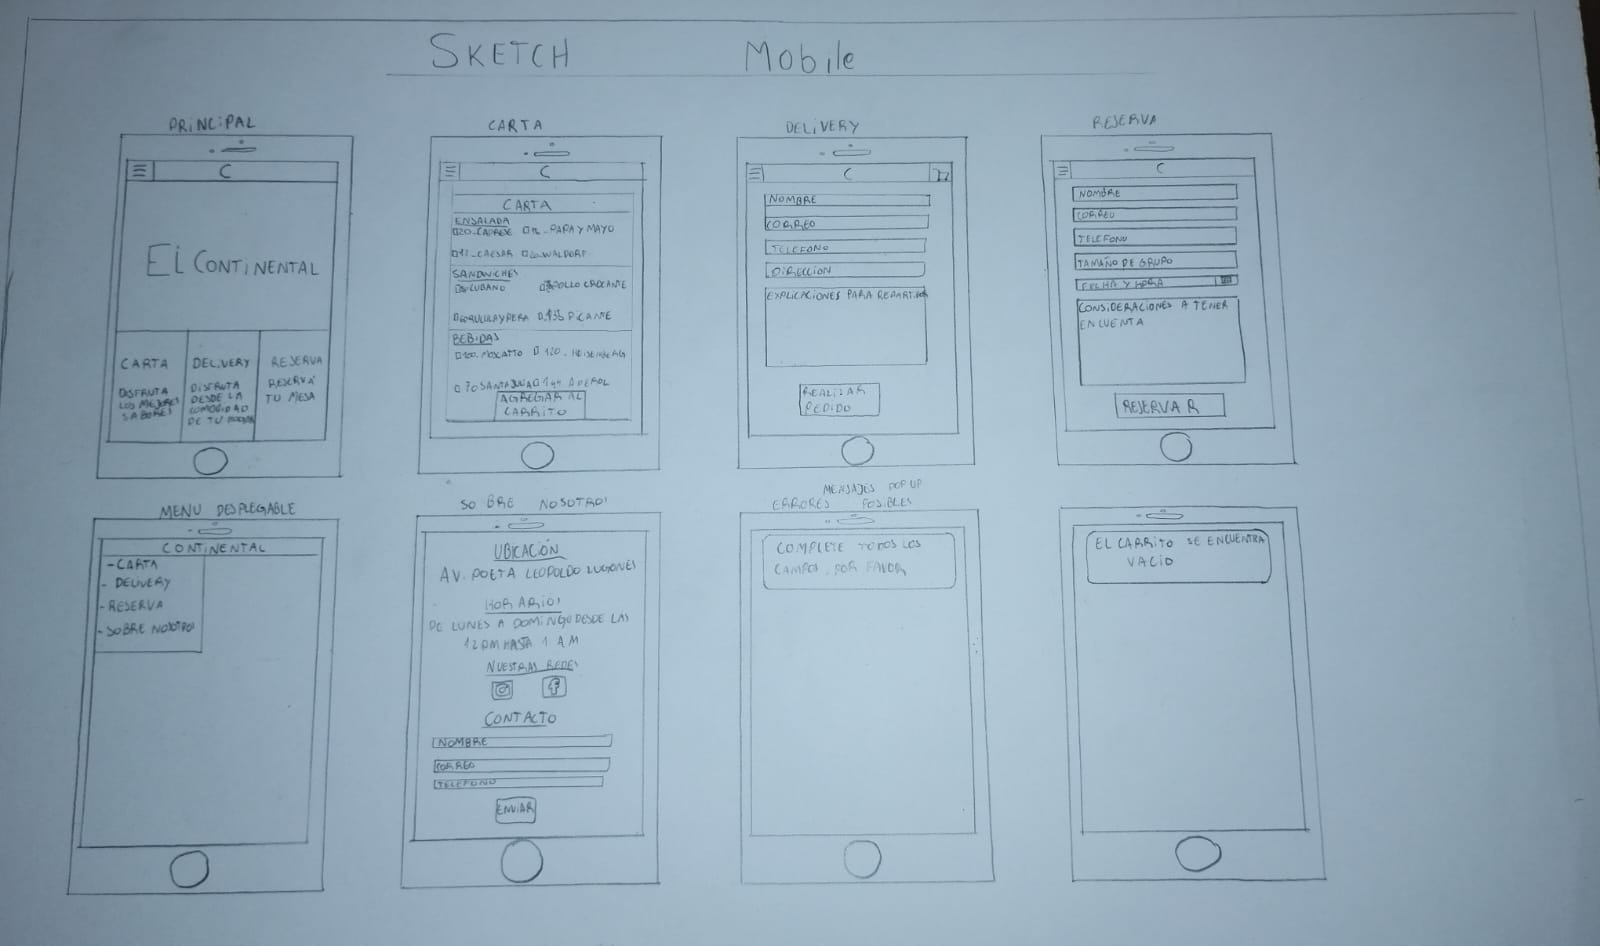 SKETCH Mobile
PRINCIPAL
C
El CONTINENTAL
CARTA
DISFRUTA
LOS MEJORES
SABORES
DELIVERY
DISFRUTA
DESDE LA
COMODIDAD
DE TU
RESERVA
RESERVÁ
TU MESA
CARTA
C
CARTA
ENSALADA
CAPRESE PAPA Y MAYO
CAESAR WALDORF
SANDWICHES
CUBANO POLLO CROCANTE
PICANTE
BEBIDAS
MOSCATTO 120. HEISENBERG
70 SANTA JULIA APEROL
AGREGAR AL
CARRITO
DELIVERY
C
NOMBRE
CORREO
TELEFONO
DIRECCION
EXPLICACIONES PARA
REALIZAR
PEDIDO
RESERVA
C
NOMBRE
CORREO
TELEFONO
TAMAÑO DE GRUPO
FECHA Y HORA
CONSIDERACIONES A TENER
EN CUENTA
RESERVAR
MENU DESPLEGABLE
CONTINENTAL
- CARTA
- DELIVERY
- RESERVA
- SOBRE NOSOTROS
SOBRE NOSOTROS
UBICACIÓN
AV. POETA LEOPOLDO LUGONES
HORARIOS
DE LUNES A DOMINGO DESDE LAS
12 PM HASTA 1 AM
NUESTRAS REDES
f
CONTACTO
NOMBRE
CORREO
TELEFONO
ENVIAR
MENSAJES POP UP
ERRORES POSIBLES
COMPLETE TODOS LOS
CAMPOS, POR FAVOR
EL CARRITO SE ENCUENTRA
VACIO